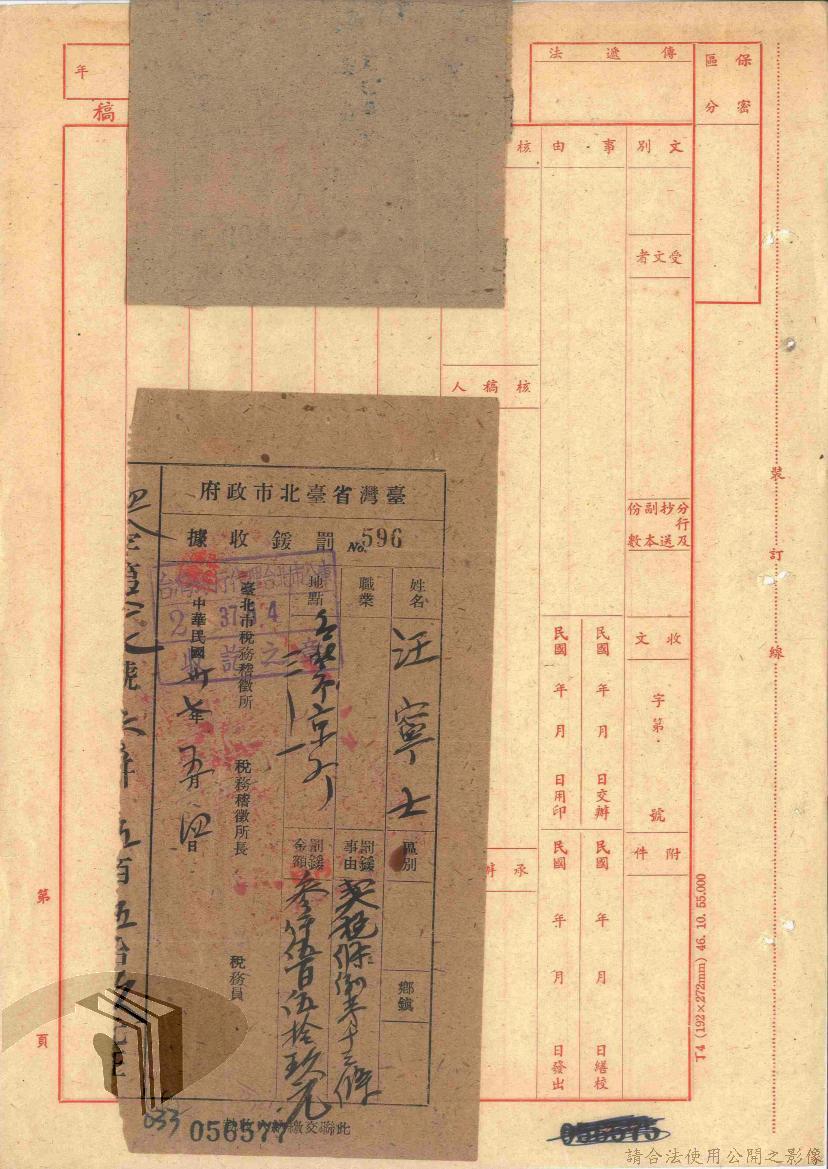 保密
區分
傳遞法
年
稿
文別
事由
核
受文者
核稿人
分行及
抄送
副本
份數
收文
字第
號
附件
民國 年 月 日交辦
民國 年 月 日用印
民國 年 月 日繕校
民國 年 月 日發出
承辦
裝
訂
線
第
頁
T4 (192×272mm) 46. 10. 55.000
臺灣省臺北市政府
罰鍰收據
No. 596
姓名 汪寧士
區別
鄉鎮
職業
罰鍰事由 契稅條例第十三條
地點
罰鍰金額 叁仟伍百伍拾玖元
臺北市稅務稽徵所 稅務稽徵所長 稅務員
中華民國卅七年五月四日
37. 5. 4
收訖之章
號 五百五拾
此聯交繳納人收執
033
056577
056575
請合法使用公開之影像